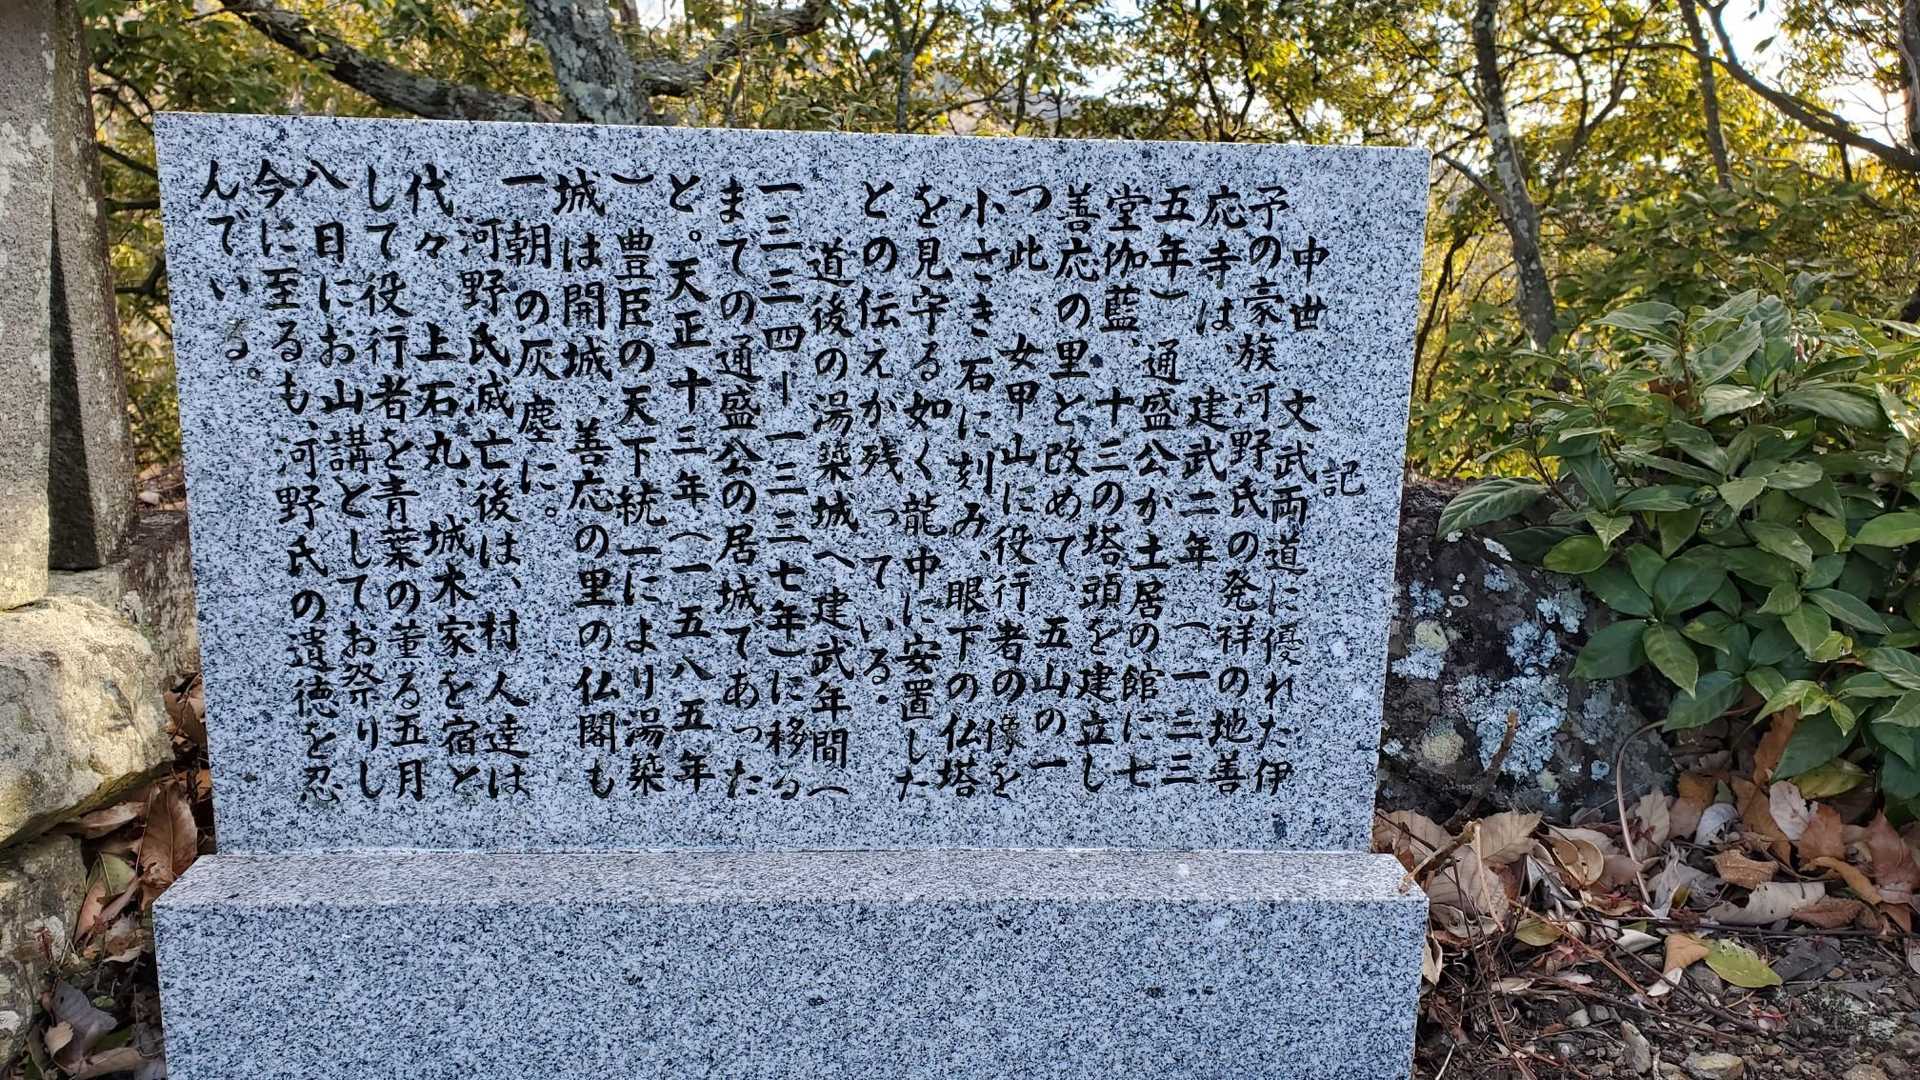 記
中世、文武両道に優れた伊
予の豪族河野氏の発祥の地善
応寺は、建武二年（一三三
五年）通盛公が土居の館に七
堂伽藍、十三の塔頭を建立し
善応の里と改めて、五山の一
つ此、女甲山に役行者の像を
小さき石に刻み、眼下の仏塔
を見守る如く龍中に安置した
との伝えが残っている。
道後の湯築城へ建武年間（
一三三四ー一三三七年）に移る
までの通盛公の居城であった
と。天正十三年（一五八五年
）豊臣の天下統一により湯築
城は開城、善応の里の仏閣も
一朝の灰塵に。
河野氏滅亡後は、村人達は
代々、上石丸、城木家を宿と
して役行者を青葉の薫る五月
八日にお山講としてお祭りし
今に至るも、河野氏の遺徳を忍
んでいる。